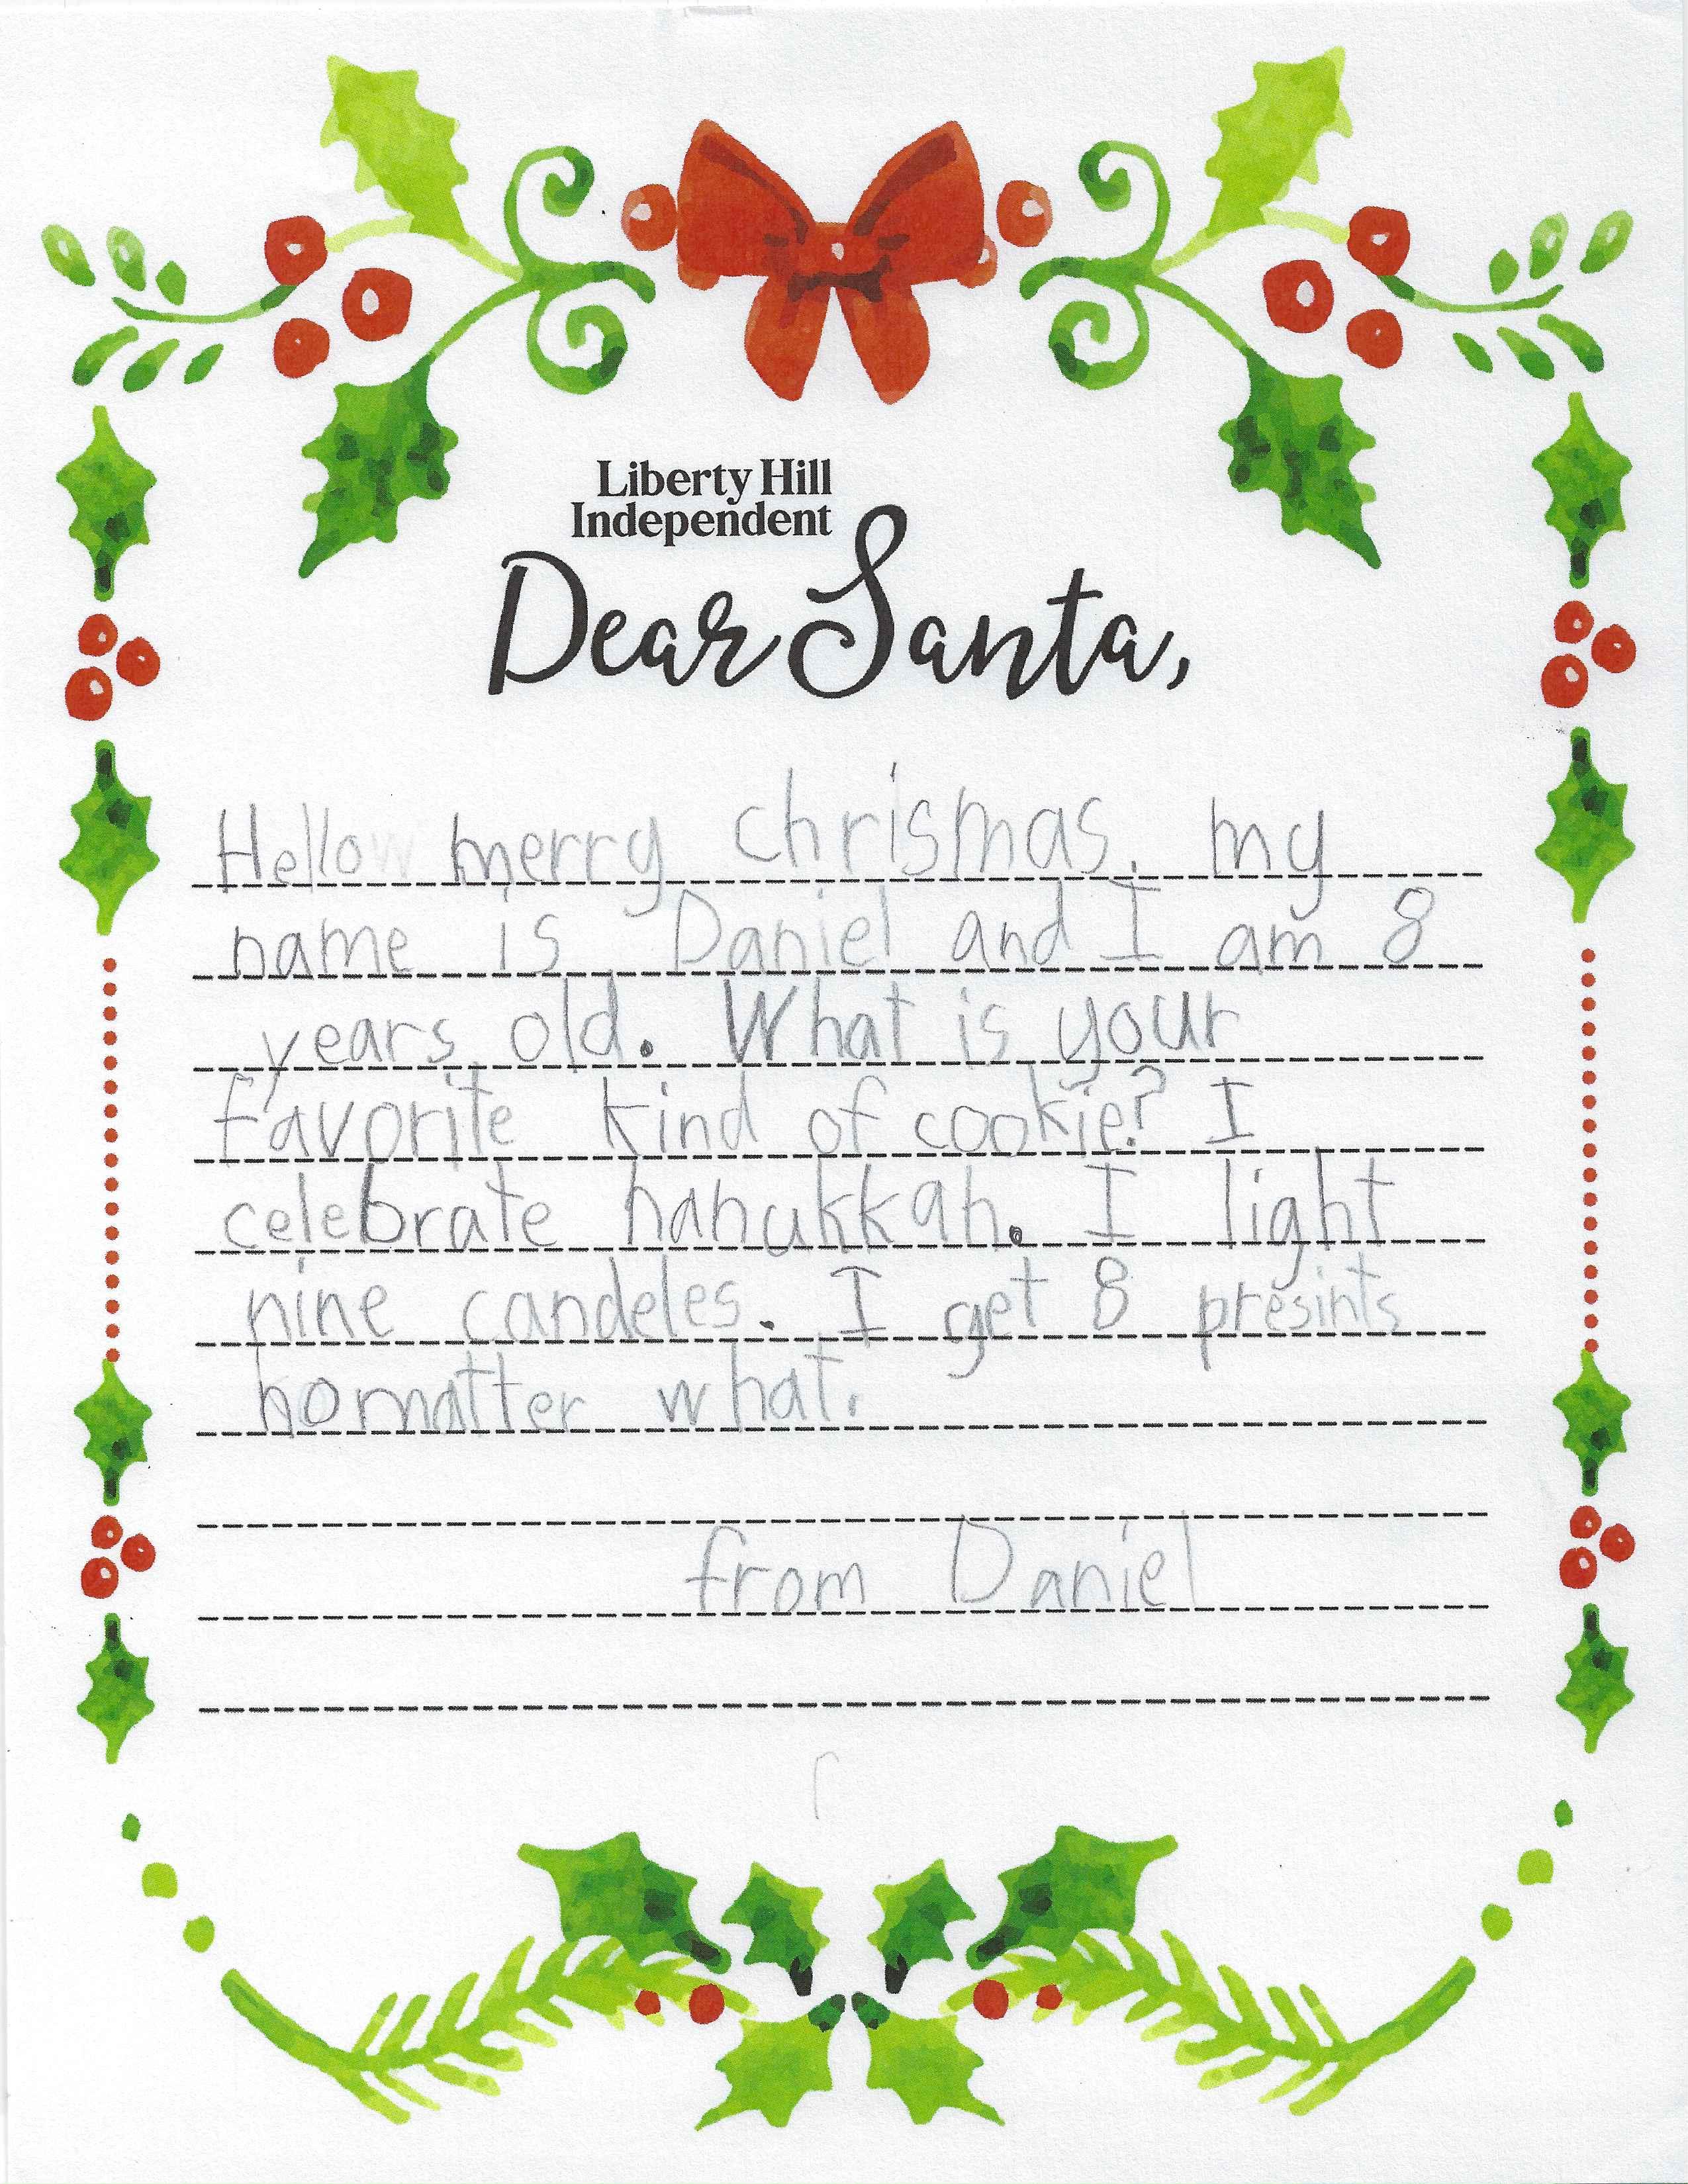 Liberty Hill
Independent
Dear Santa,
Hello merry chrismas. my
name is Daniel and I am 8
years old. What is your
favorite kind of cookie? I
celebrate hanukkah. I light
nine candeles. I get 8 presints
nomatter what.
from Daniel